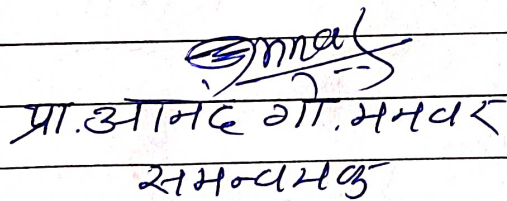 प्रा.आनंद गो.मनवर
समन्वयक